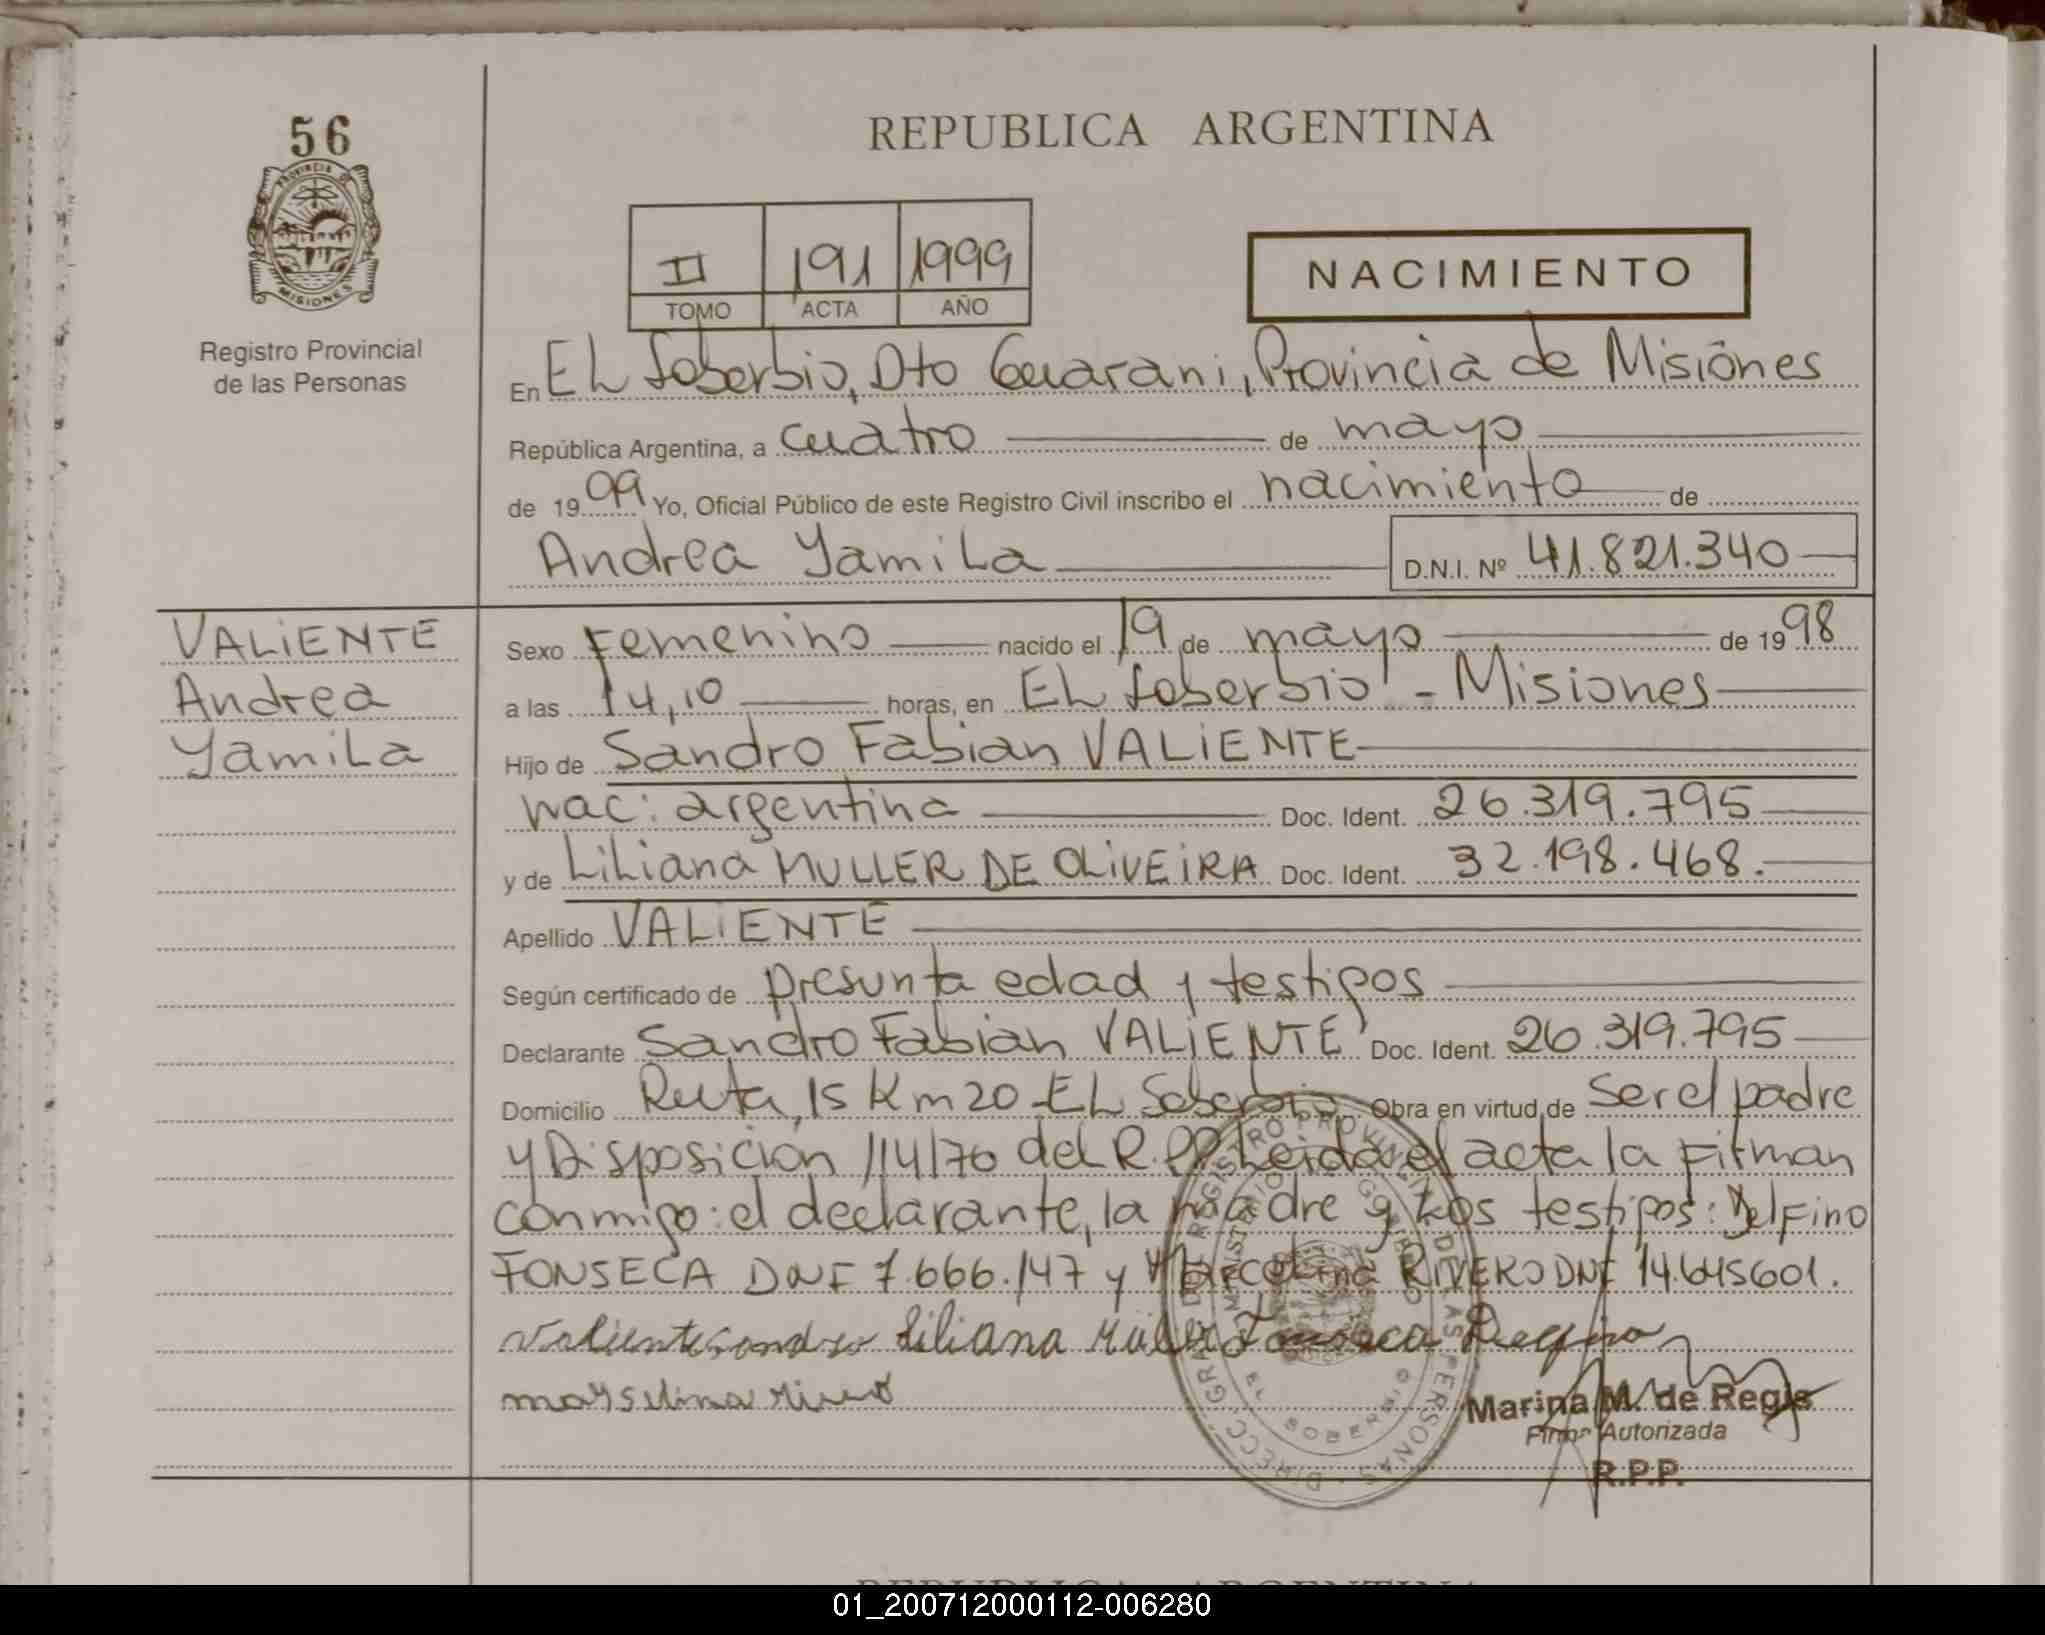 56
PROVINCIA DE
MISIONES
Registro Provincial
de las Personas
REPUBLICA ARGENTINA
II 191 1999
TOMO ACTA AÑO
NACIMIENTO
En EL Soberbio, Dto Guarani, Provincia de Misiones
República Argentina, a cuatro de mayo
de 1999 Yo, Oficial Público de este Registro Civil inscribo el nacimiento de
Andrea Yamila D.N.I. Nº 41.821.340
VALIENTE
Andrea
Yamila
Sexo Femenino nacido el 19 de mayo de 1998
a las 14,10 horas, en EL Soberbio - Misiones
Hijo de Sandro Fabian VALIENTE
nac: argentina Doc. Ident. 26.319.795
y de Liliana MULLER DE OLIVEIRA Doc. Ident. 32.198.468.
Apellido VALIENTE
Según certificado de presunta edad y testigos
Declarante Sandro Fabian VALIENTE Doc. Ident. 26.319.795
Domicilio Ruta, 15 Km 20 EL Soberbio Obra en virtud de ser el padre
y Disposicion 114/70 del R.P.P. Leida el acta la Firman
conmigo: el declarante, la madre y Los testigos: Delfino
FONSECA DNI 7.666.147 y Marcelina RIVERO DNI 14.645601.
Valiente sandro Liliana Muller Fonseca
marselina rivero
Marina M. de Regis
Firma Autorizada
R.P.P.
DIRECC. GRAL. DE REGISTRO PROVINCIAL DE LAS PERSONAS
MINISTERIO DE GOBIERNO
EL SOBERBIO
REPUBLICA ARGENTINA
01_200712000112-006280